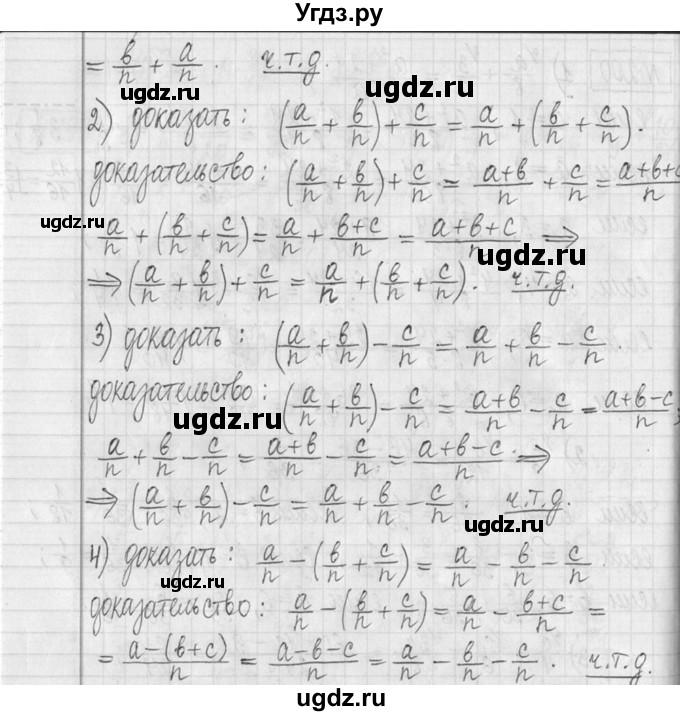 Угдз.ру
= в/n + а/n. ч.т.д.
ugdz.ru
ugdz.ru
2) доказать: (a/n + в/n) + c/n = a/n + (в/n + c/n).
доказательство: (a/n + в/n) + c/n = a+в/n + c/n = a+в+c/n
ugdz.ru
a/n + (в/n + c/n) = a/n + в+c/n = a+в+c/n ⇒
⇒ (a/n + в/n) + c/n = a/n + (в/n + c/n). ч.т.д.
ugdz.ru
3) доказать: (a/n + в/n) - c/n = a/n + в/n - c/n.
доказательство: (a/n + в/n) - c/n = a+в/n - c/n = a+в-c/n;
ugdz.ru
a/n + в/n - c/n = a+в/n - c/n = a+в-c/n ⇒
⇒ (a/n + в/n) - c/n = a/n + в/n - c/n. ч.т.д.
ugdz.ru
4) доказать: a/n - (в/n + c/n) = a/n - в/n - c/n
ugdz.ru
доказательство: a/n - (в/n + c/n) = a/n - в+c/n =
= a-(в+c)/n = a-в-c/n = a/n - в/n - c/n. ч.т.д.
ugdz.ru
ugdz.ru